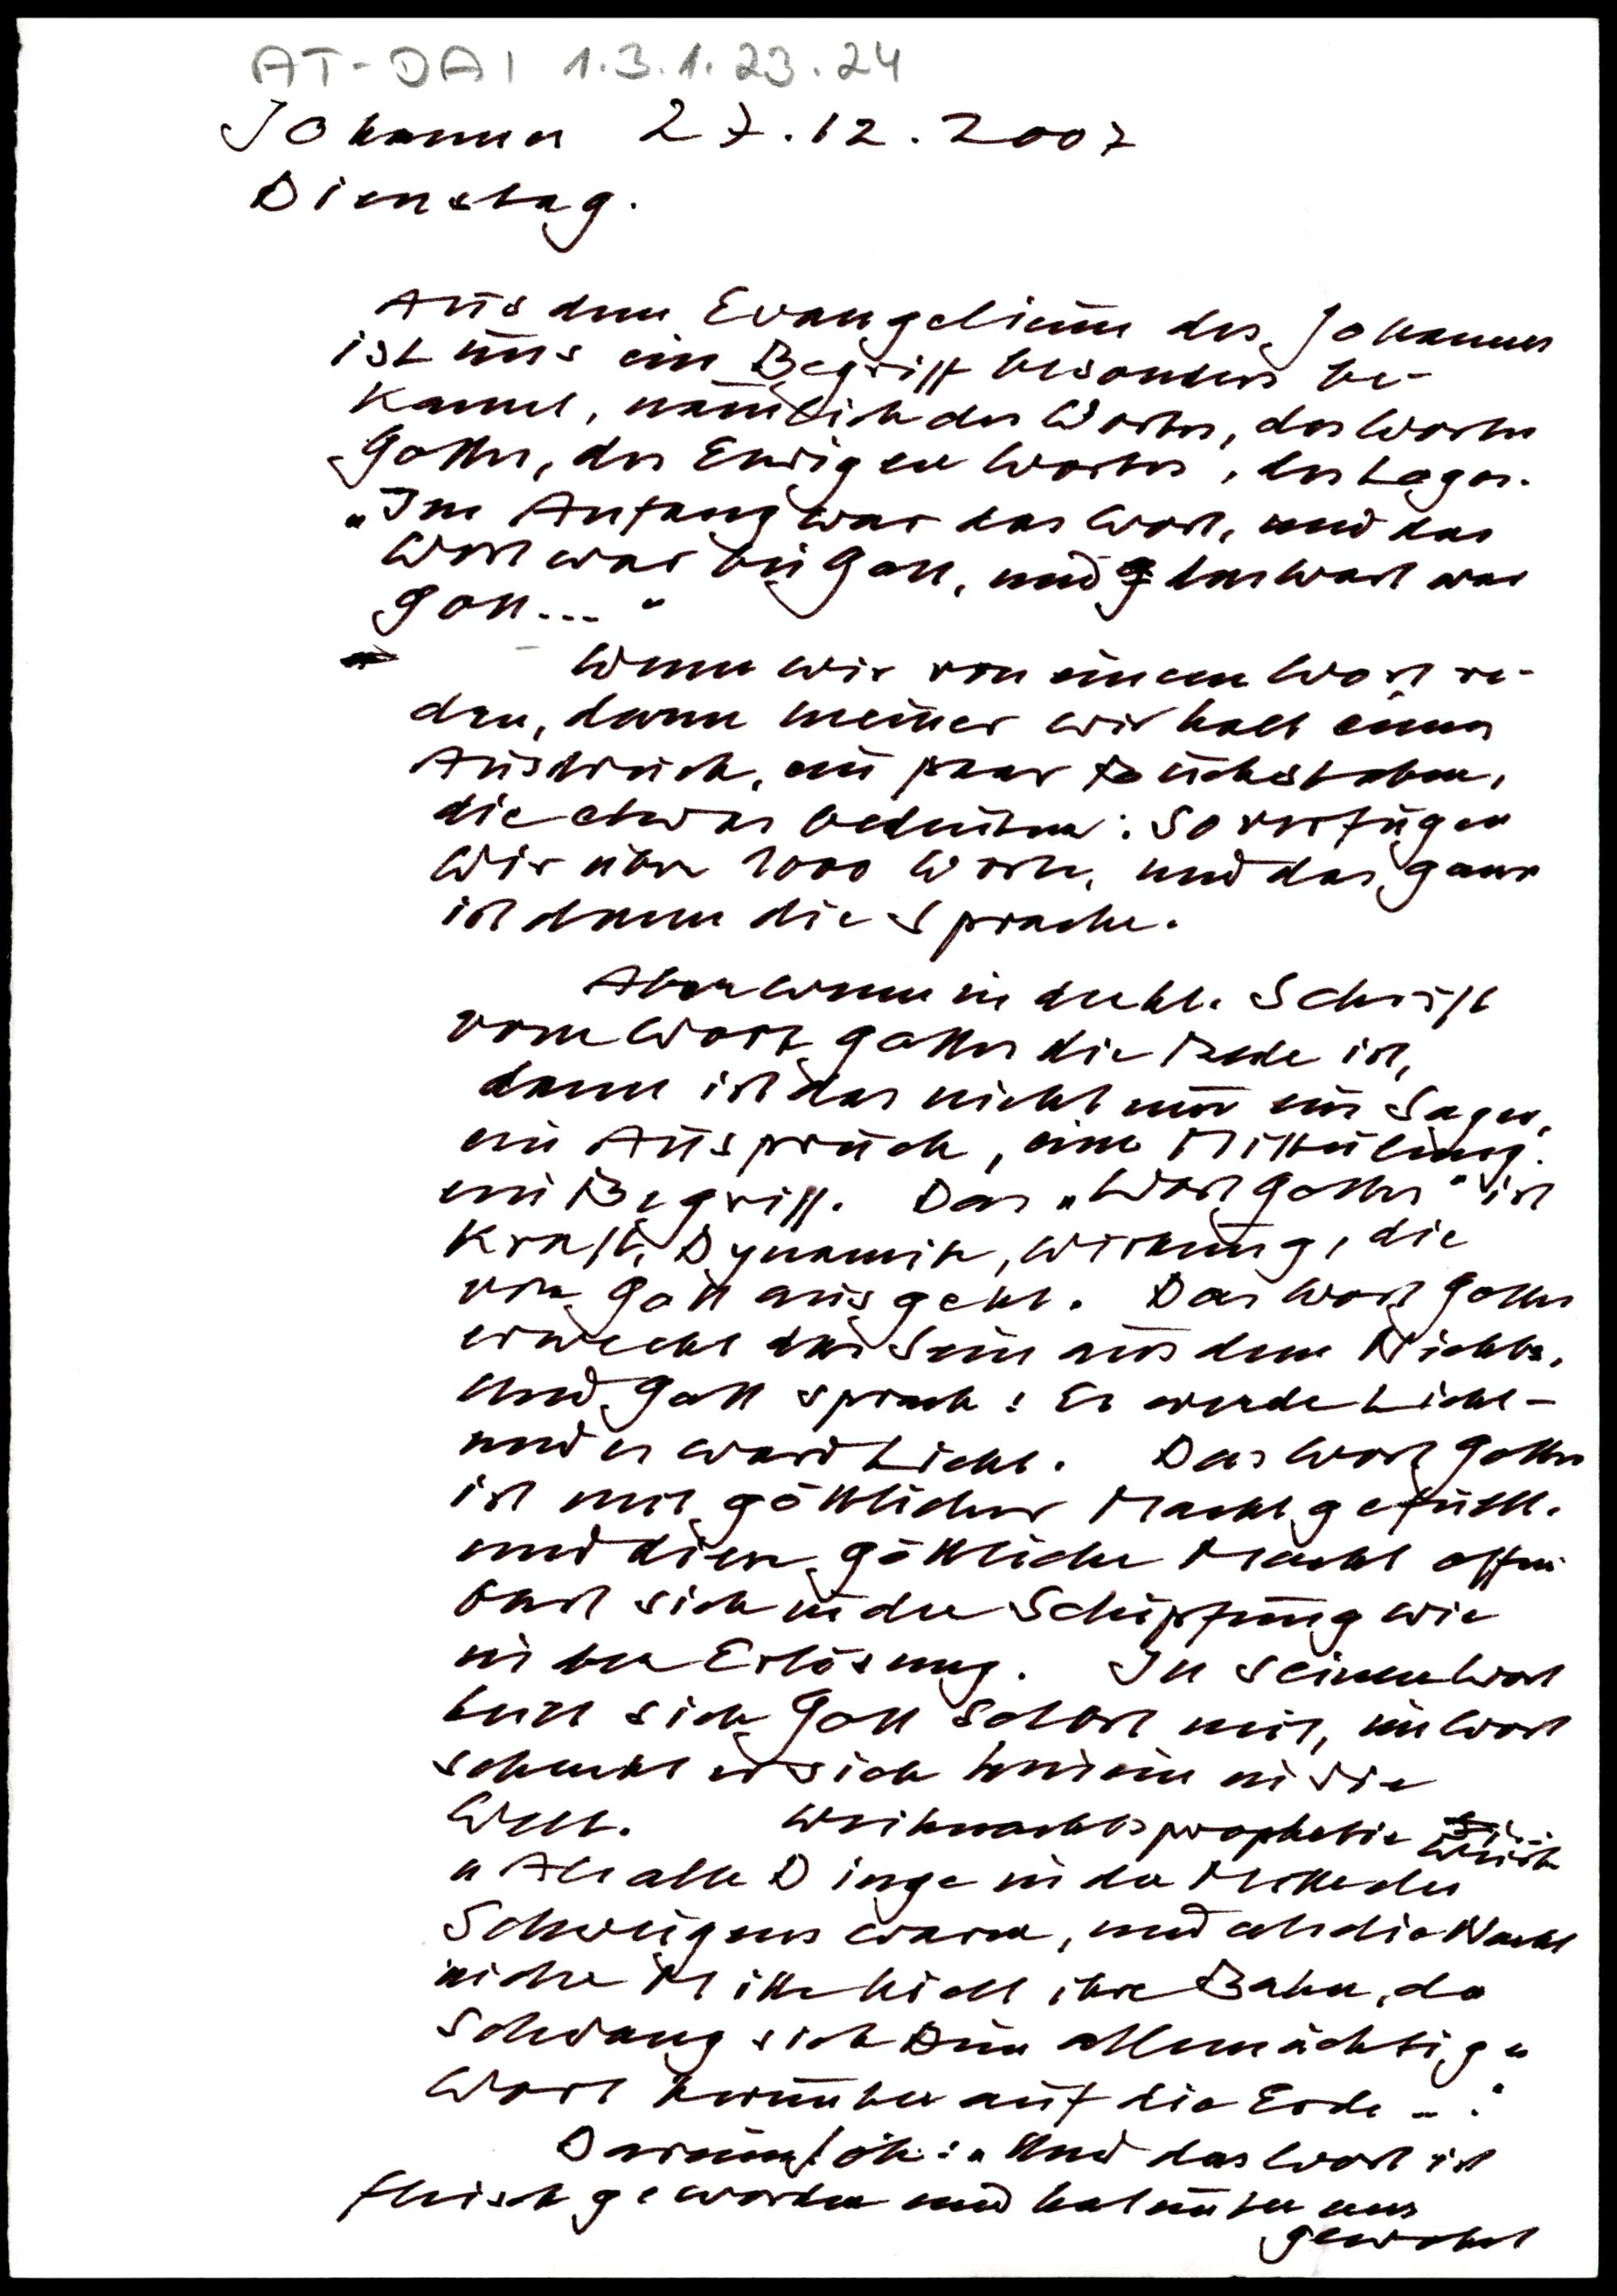 AT-DAI 1.3.1.23.24
Johannes 27.12.2007
Dienstag.
Aus dem Evangelium des Johannes
ist uns ein Begriff besonders be-
kannt, nämlich des Wortes, des Wortes
Gottes, des Ewigen Wortes, des Logos.
„Im Anfang war das Wort, und das
Wort war bei Gott, und das Wort war
Gott..."
Wenn wir von einem Wort re-
den, dann meinen wir halt einen
Ausdruck, ein paar Buchstaben,
die etwas bedeuten: So verfügen
wir über 1000 Worte, und das ganze
ist dann die Sprache.
Aber wenn in der hl. Schrift
vom Wort Gottes die Rede ist,
dann ist das nicht nur ein Sagen,
ein Ausspruch, eine Mitteilung.
ein Begriff. Das „Wort Gottes" ist
Kraft, Dynamik, Wirkung, die
von Gott ausgeht. Das Wort Gottes
erweckt das Sein aus dem Nichts.
Und Gott sprach: Es werde Licht -
und es ward Licht. Das Wort Gottes
ist mit göttlicher Macht gefüllt.
und diese göttliche Macht offen
bart sich in der Schöpfung wie
in der Erlösung. In seinem Wort
teilt sich Gott selbst mit, im Wort
schenkt er sich hinein in die
Welt. Weihnachtsprophetie
„Als alle Dinge in der Mitte des
Schweigens waren, und als die Nacht
in der Mitte hielt ihre Bahn, da
schwang sich Dein allmächtiges
Wort herunter auf die Erde ..."
Darum Joh: „Und das Wort ist
Fleisch geworden und hat unter uns
gewohnt